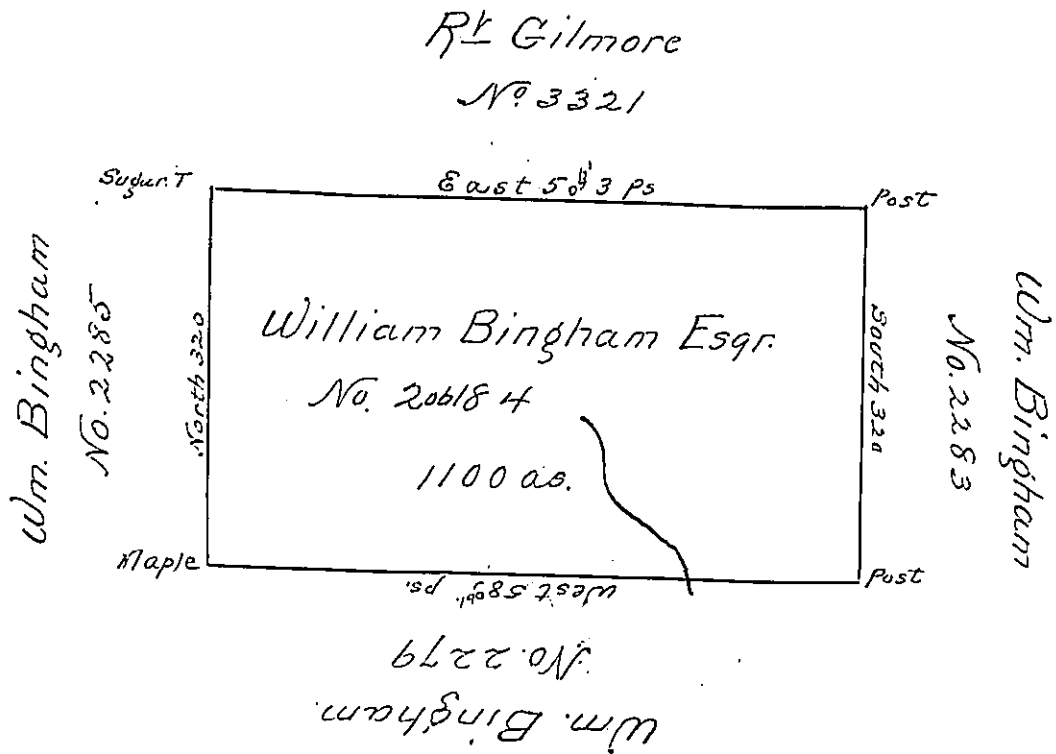 Rt Gilmore
No 3321
Sugur. T
East 5 3 ps
Post
Wm. Bingham
No. 2285
North 320
William Bingham Esqr.
No. 20618 4
1100 as.
South 320
No. 2283
Wm. Bingham
Maple
West 58 ps.
Post
No. 2279
Wm. Bingham.